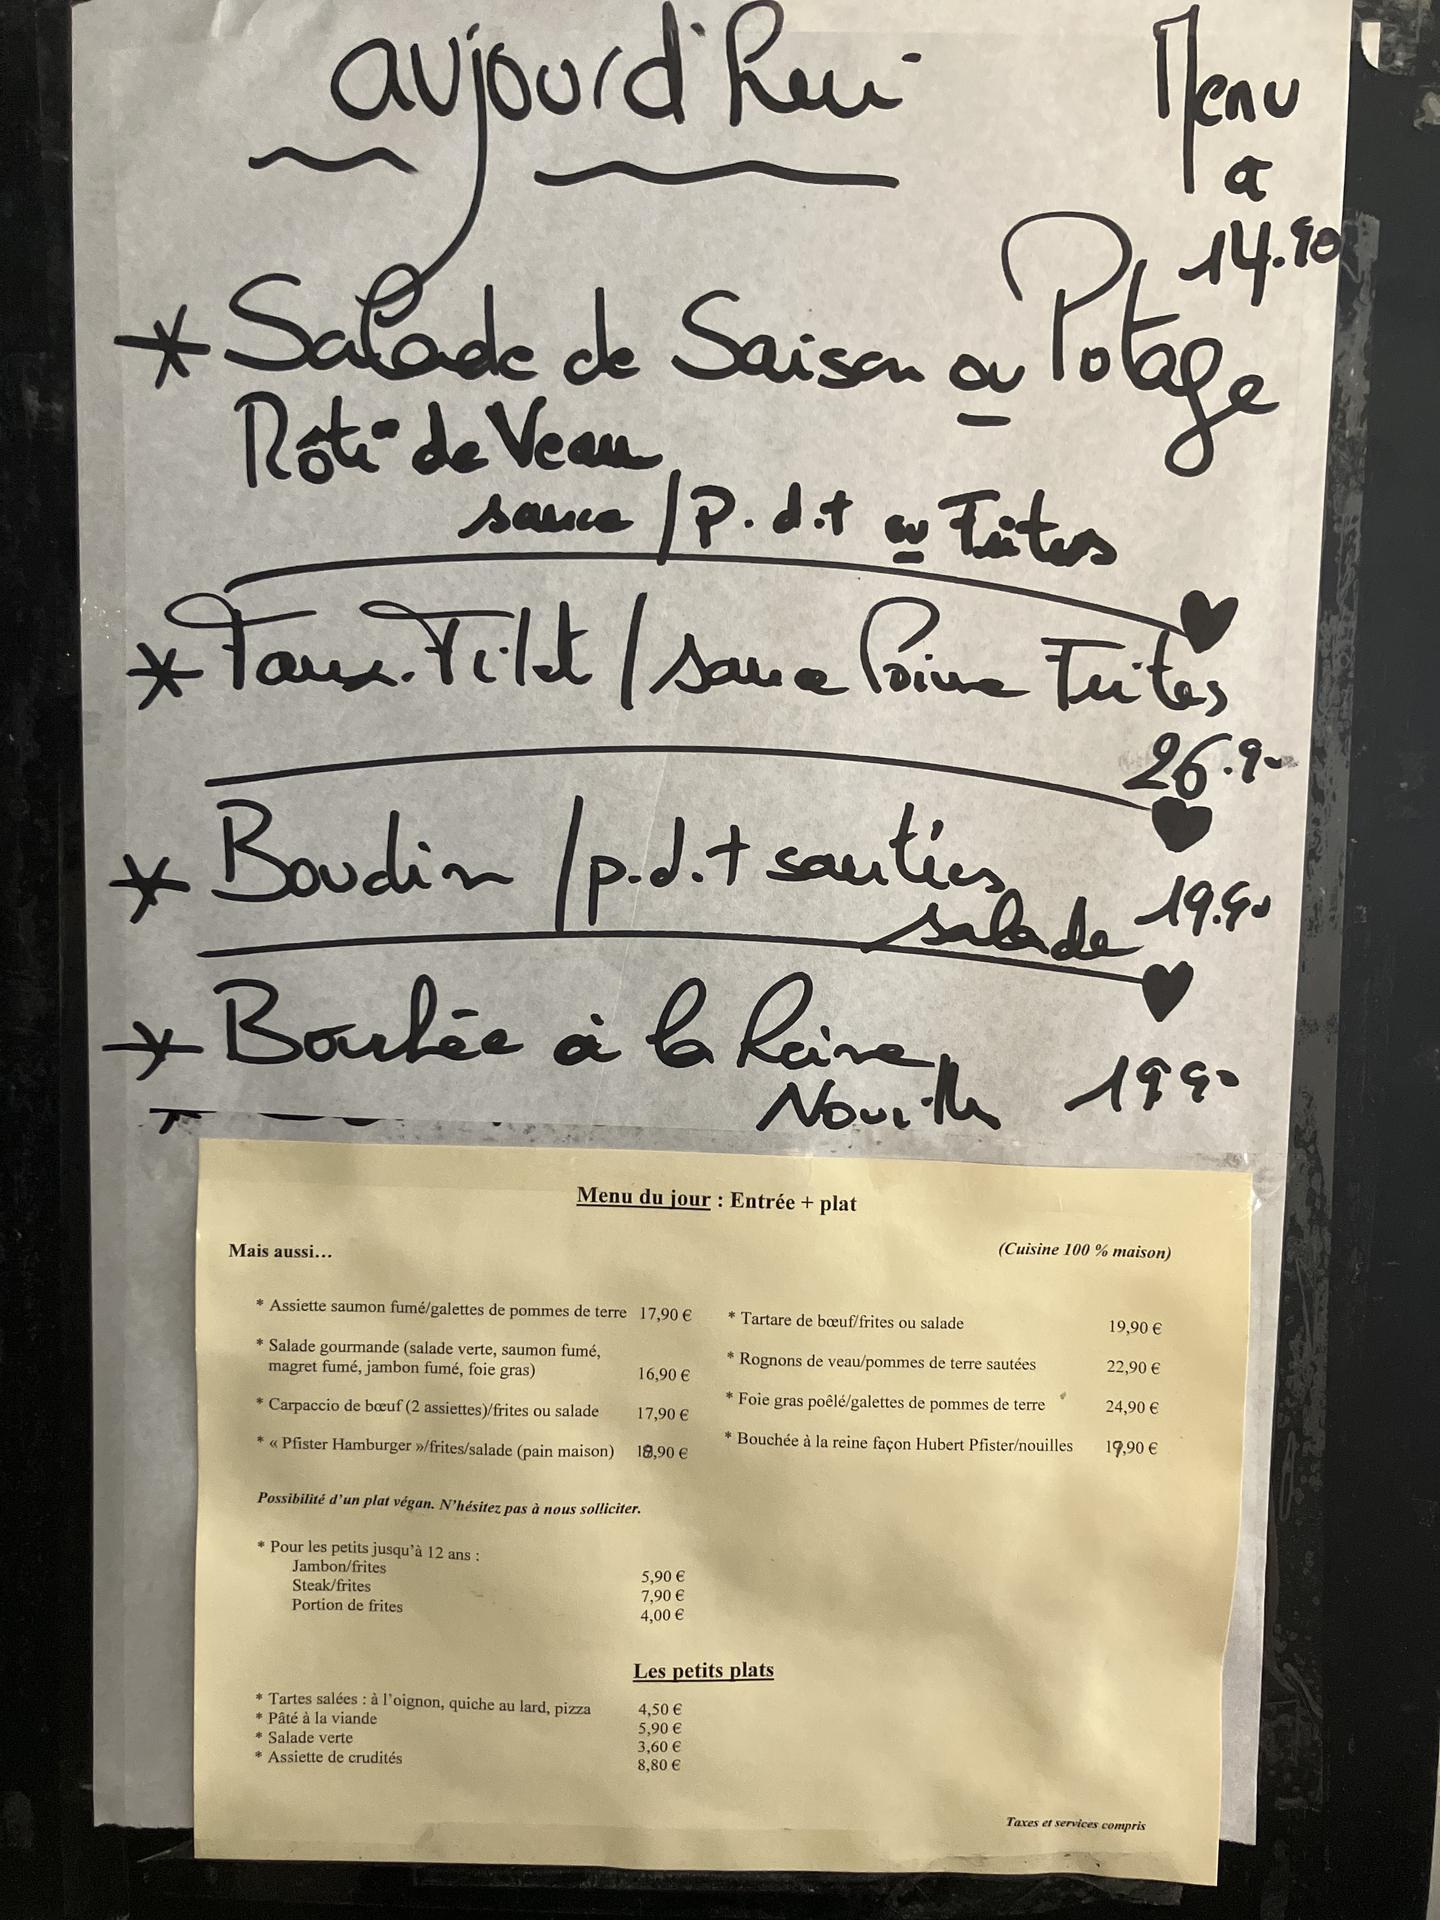 aujourd'hui
Menu
a
14.90
* Salade de Saison ou Potage
Rôti de Veau
sauce / p.d.t ou Frites
* Faux-Filet / sauce Poivre Frites
26.90
* Boudin / p.d.t sautées
salade 19.90
* Bouchée à la Reine
Nouilles 19 90
Menu du jour : Entrée + plat
Mais aussi… (Cuisine 100 % maison)
* Assiette saumon fumé/galettes de pommes de terre 17,90 €
* Salade gourmande (salade verte, saumon fumé,
magret fumé, jambon fumé, foie gras) 16,90 €
* Carpaccio de bœuf (2 assiettes)/frites ou salade 17,90 €
* « Pfister Hamburger »/frites/salade (pain maison) 18,90 €
* Tartare de bœuf/frites ou salade 19,90 €
* Rognons de veau/pommes de terre sautées 22,90 €
* Foie gras poêlé/galettes de pommes de terre 24,90 €
* Bouchée à la reine façon Hubert Pfister/nouilles 19,90 €
Possibilité d'un plat végan. N'hésitez pas à nous solliciter.
* Pour les petits jusqu'à 12 ans :
Jambon/frites 5,90 €
Steak/frites 7,90 €
Portion de frites 4,00 €
Les petits plats
* Tartes salées : à l'oignon, quiche au lard, pizza 4,50 €
* Pâté à la viande 5,90 €
* Salade verte 3,60 €
* Assiette de crudités 8,80 €
Taxes et services compris